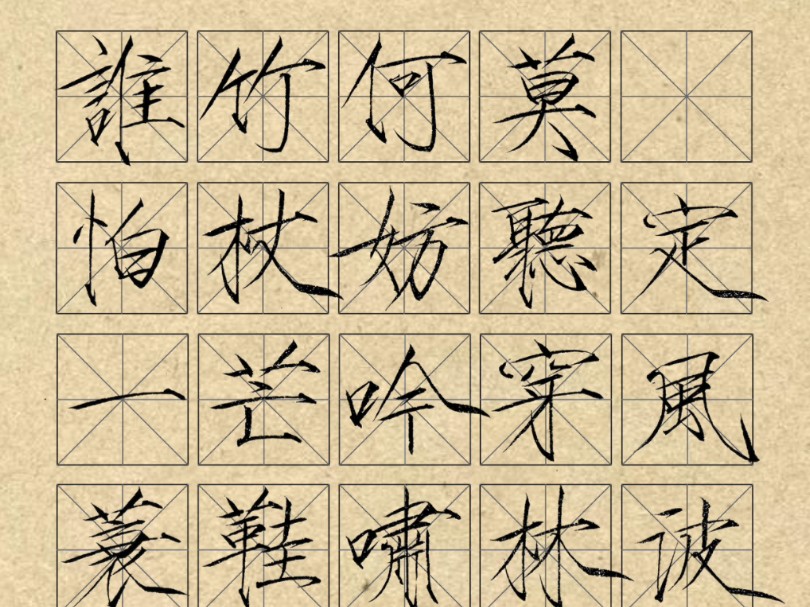 定風波
莫聽穿林
何妨吟嘯
竹杖芒鞋
誰怕一蓑